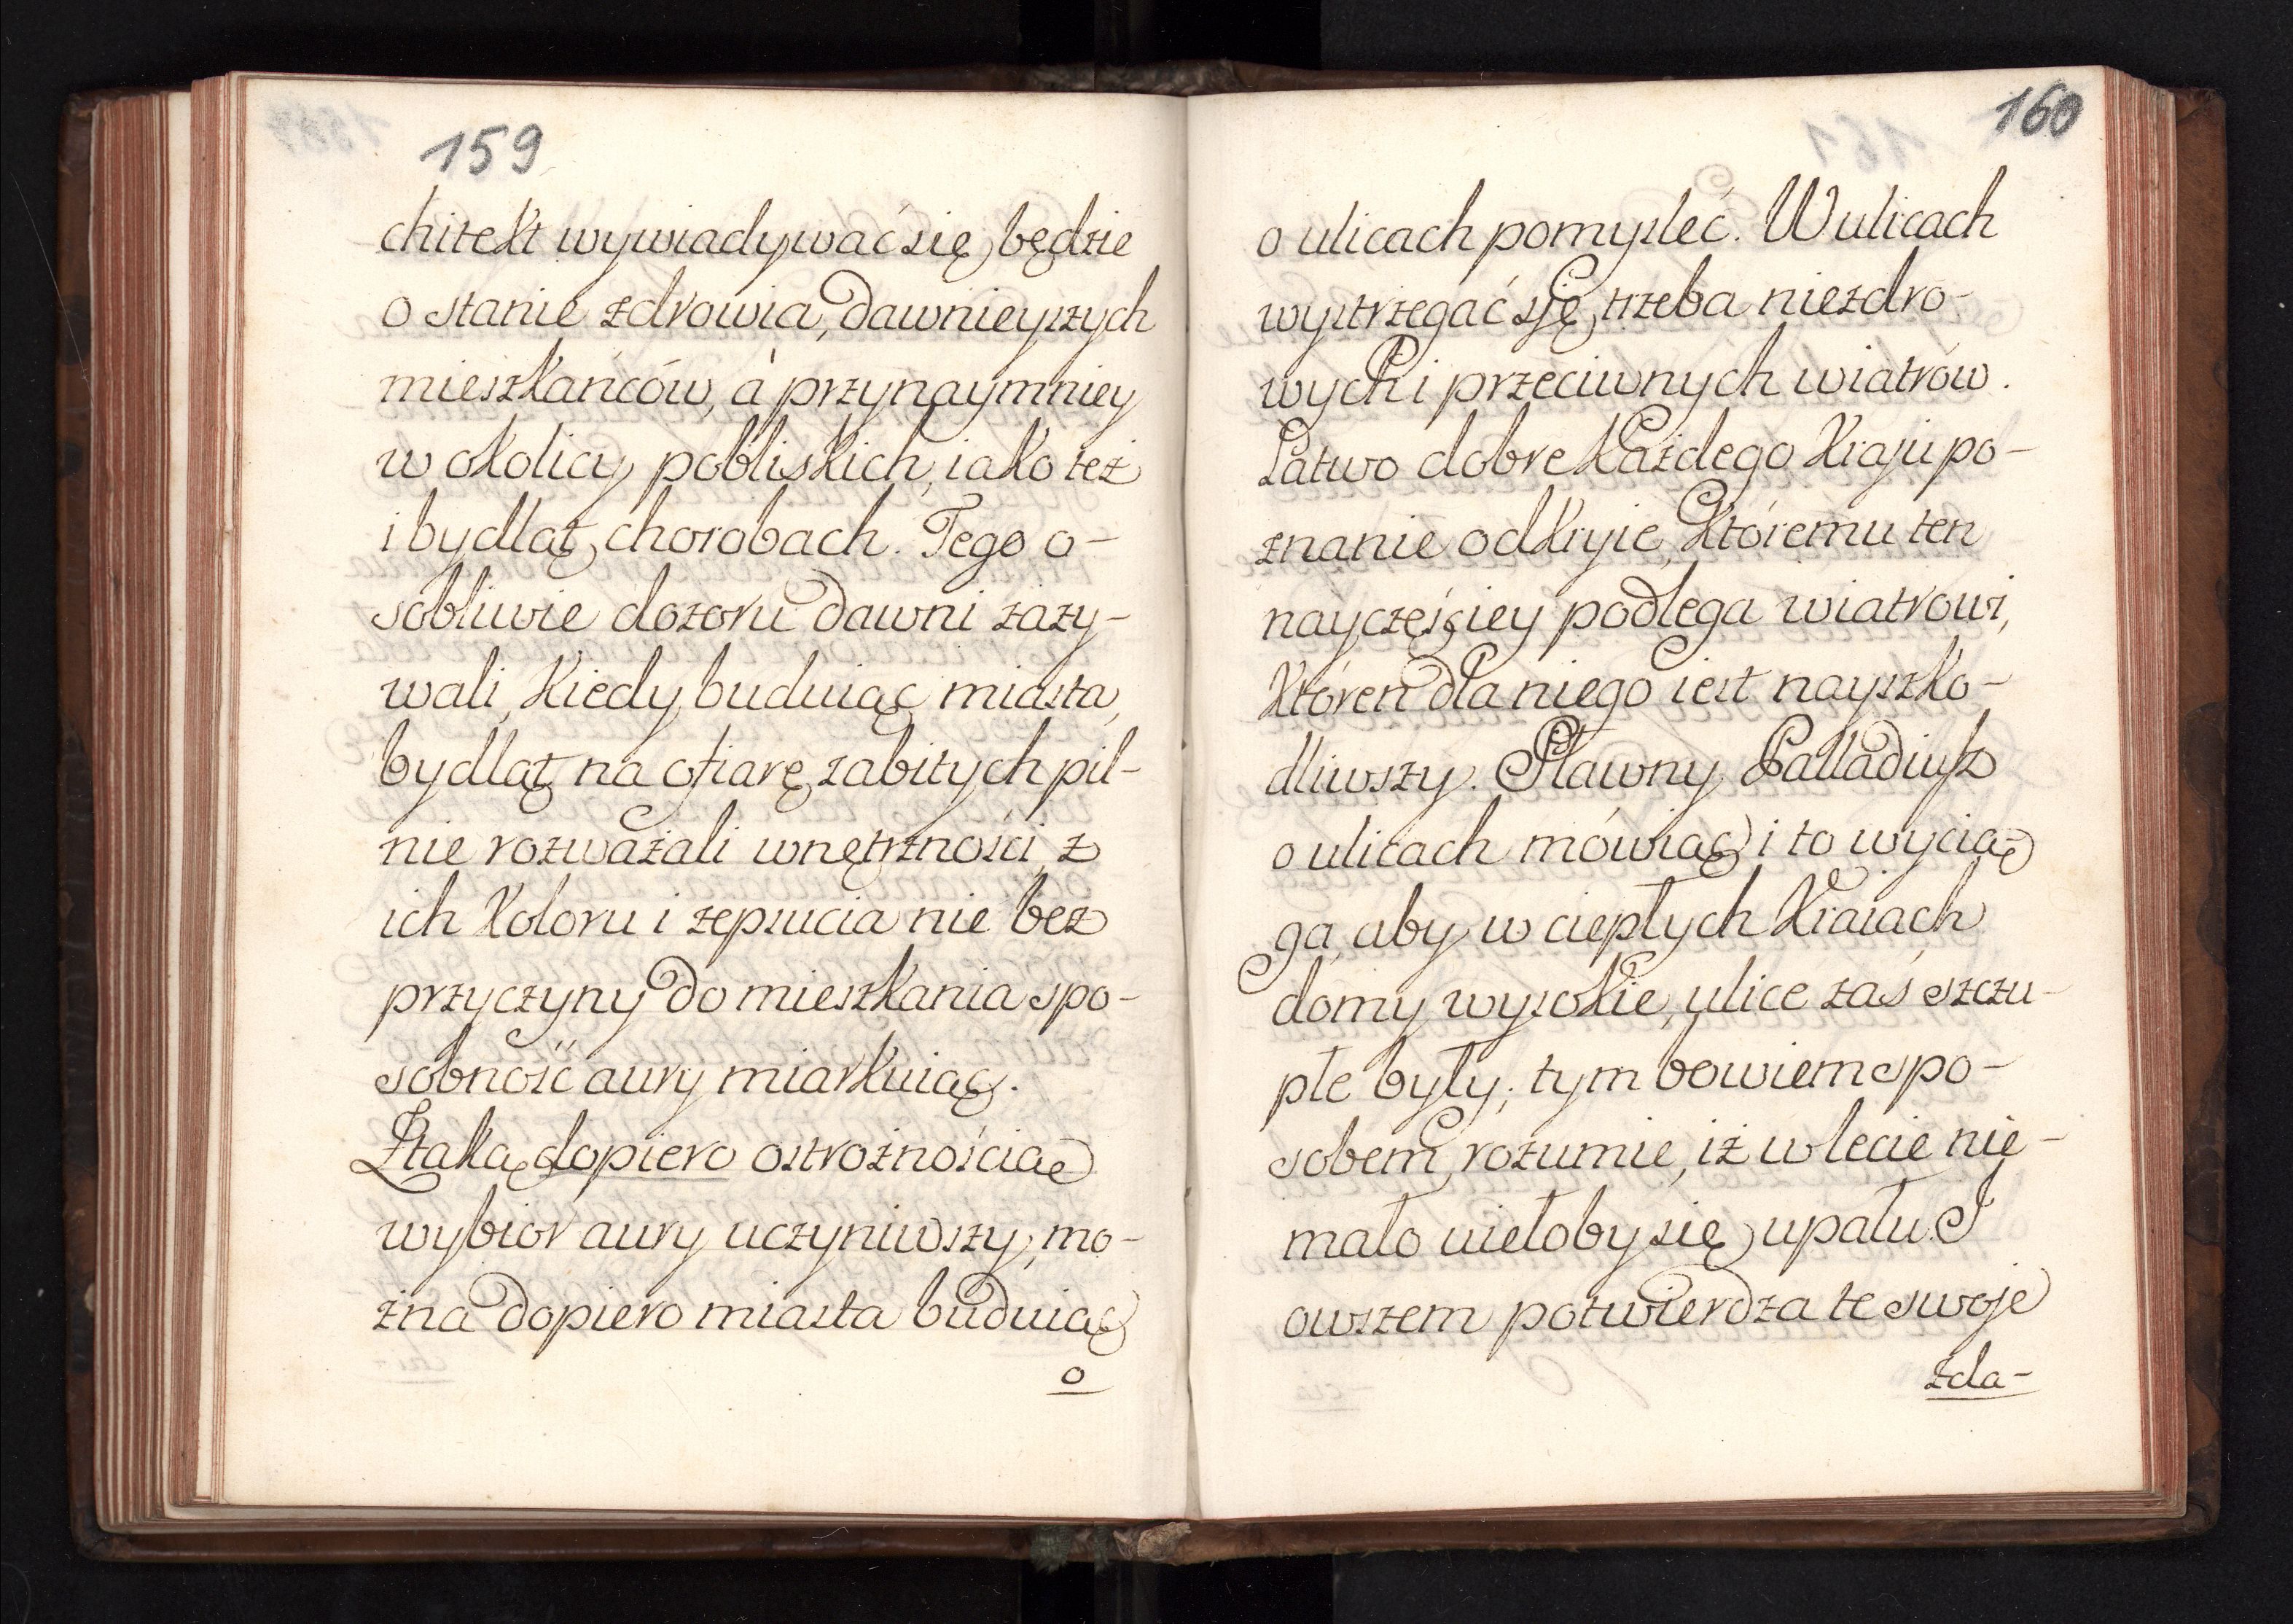 159
chitekt wywiadywać się będzie
o stanie zdrowia, dawnieyszych
mieszkańców, a przynaymniey
w okolicy pobliskich, iako też
i bydląt chorobach. Tego o-
sobliwie dozoru dawni zazy-
wali, kiedy buduiąc miasta,
bydląt na ofiarę zabitych pil-
nie rozważali wnętrzności, z
ich koloru i zepsucia nie bez
przyczyny do mieszkania spo-
sobność aury miarkuiąc.
Z taką dopiero ostrożnością
wybior aury uczyniwszy, mo-
żna dopiero miasta buduiąc
o
160
o ulicach pomysleć. W ulicach
wystrzegać sję trzeba niezdro-
wych i przeciwnych wiatrów.
Łatwo dobre każdego kraju po-
znanie odkryie, któremu ten
nayczęściey podlega wiatrowi,
któren dla niego iest nayszko-
dliwszy. Sławny Palladiusz
o ulicach mówiąc i to wycią
ga, aby w ciepłych kraiach
domy wysokie, ulice zaś szczu-
płe były; tym bowiem spo-
sobem, rozumie, iż w lecie nie-
mało uiełoby się upału. I
owszem potwierdza te swoje
zda-